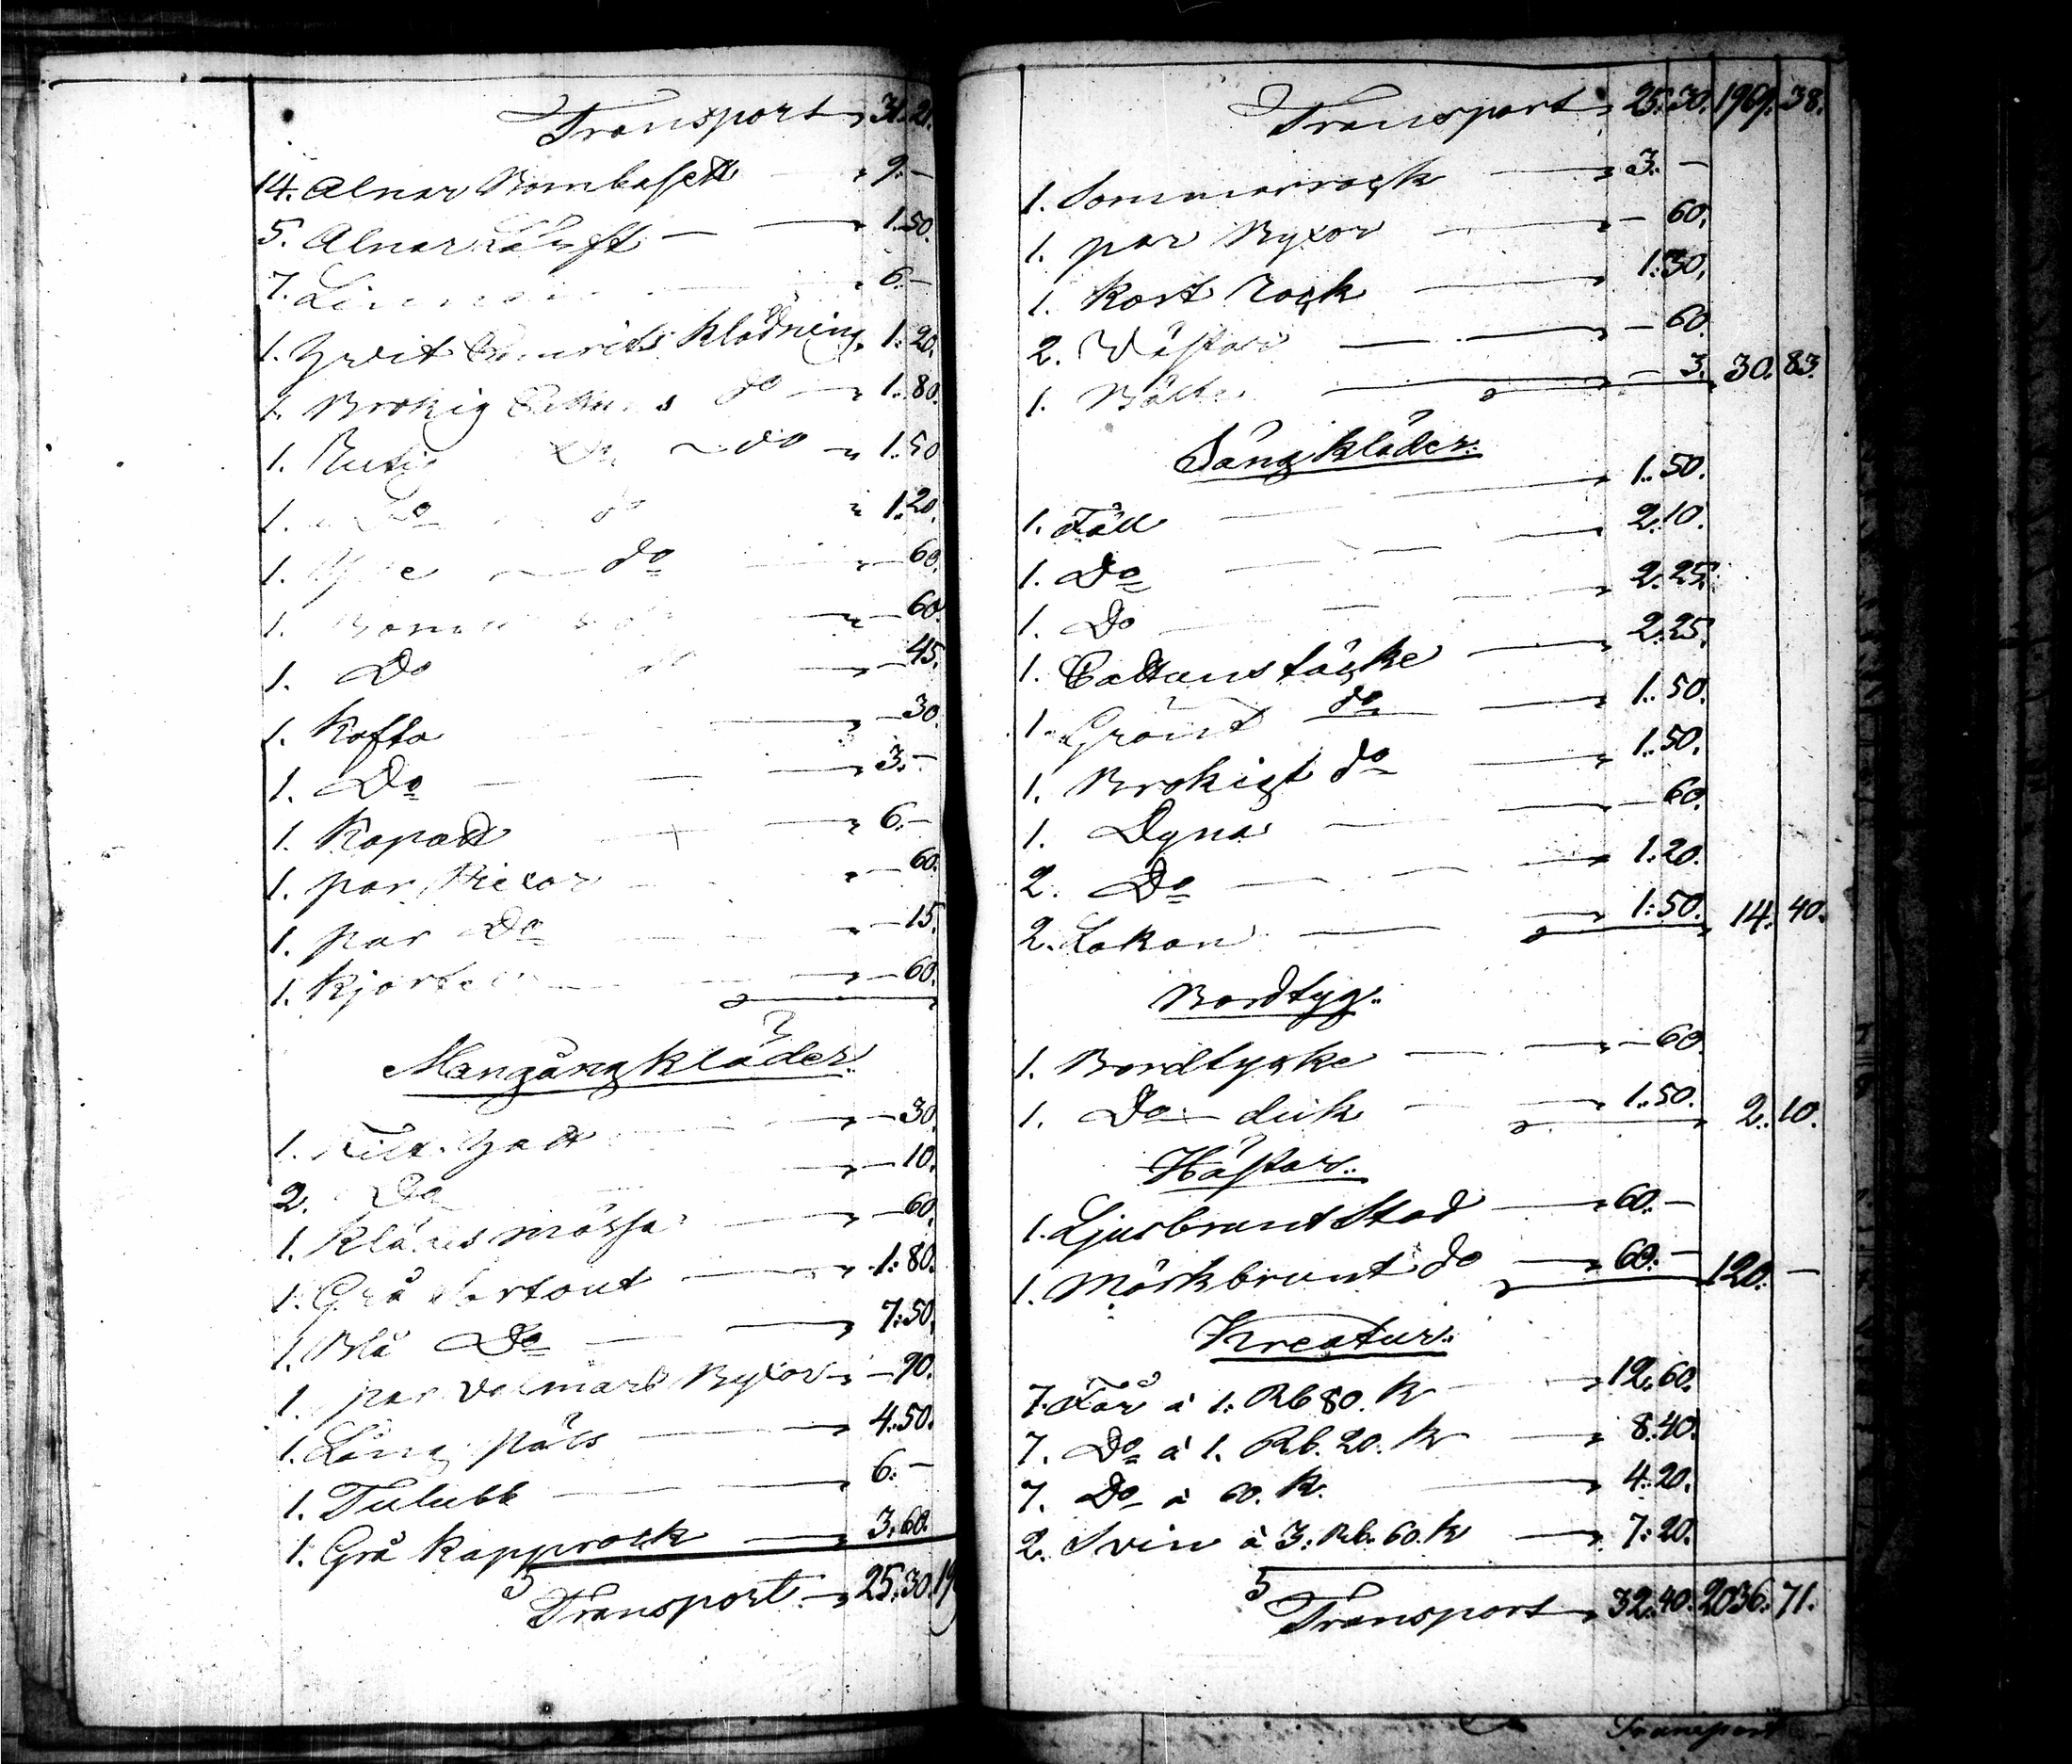 Transport 31. 21.
14. Alnar Bombasett 9. –
5. Alnar Lärft 1. 50.
7. 6. –
1. Hvit Klädning 1. 20.
1. Brokig do 1. 80.
1. Rutig do 1. 50
1. Do do 1. 20.
1. do 60.
1. 60.
1. Do do 45.
1. Kofta 30.
1. Do 3. –
1. Kapott 6. –
1. par Bixor 60.
1. par Do 15.
1. Kjortel 60.
Mangångkläder.
1. Filt Hatt 30.
2. Do 10.
1. Klädes mössa 60.
1. Grå Sertout 1: 80.
1. Blå Do 7: 50.
1. par Valmars Byxor 90.
1. Lång päls 4: 50.
1. Tulubb 6: –
1. Grå Kapprock 3: 60.
Transport 25: 30. 19
Transport 25. 30. 1969. 38.
1. Sommarrock 3. –
1. par Byxor 60.
1. Kort Rock 1: 30.
2. Västar 60.
1. Bälte 3. 30. 83.
Sängkläder.
1. Fäll 1. 50.
1. Do 2. 10.
1. Do 2. 25.
1. Cattuns täcke 2. 25.
1. Grönt do 1. 50.
1. Brokigt do 1. 50.
1. Dyna 60.
2. Do 1. 20.
2. Lakan 1: 50. 14. 40.
Bordtyg.
1. Bordtycke 60.
1. Do duk 1. 50. 2. 10.
Hästar.
1. Ljusbrunt Stod 60. –
1. Mörkbrunt do 60. – 120. –
Kreatur.
7. Får à 1: Rb 80. K 12. 60.
7. Do à 1. Rb. 20. K 8. 40.
7. Do à 60. K. 4. 20.
2. Svin à 3: Rb. 60. K 7: 20.
Transport 32. 40. 2036. 71.
Transport